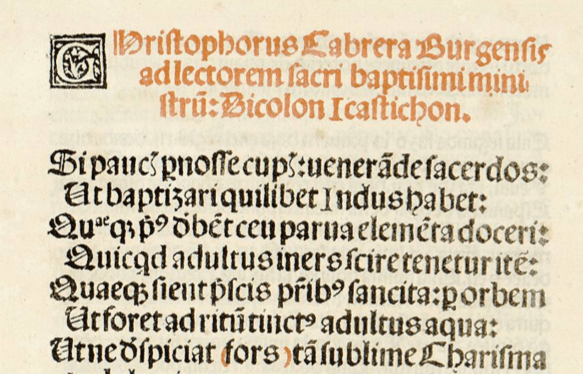 Christophorus Cabrera Burgensis
ad lectorem sacri baptismi mini
strũ: Dicolon Icastichon.
Si paucꝫ p̱nosse cupꝫ: uenerãde sacerdos:
Ut baptizari quilibet Indus habet:
Quaeqꝫ p̃ꝰ d̃bẽt ceu parua elemẽta doceri:
Quicqd adultus iners scire tenetur itẽ:
Quaeqꝫ sient p̃scis pr̃ibꝰ sancita: ꝑ orbem
Ut foret ad ritũ tinctꝰ adultus aqua:
Ut ne d̃spiciat (fors) tã sublime Charisma